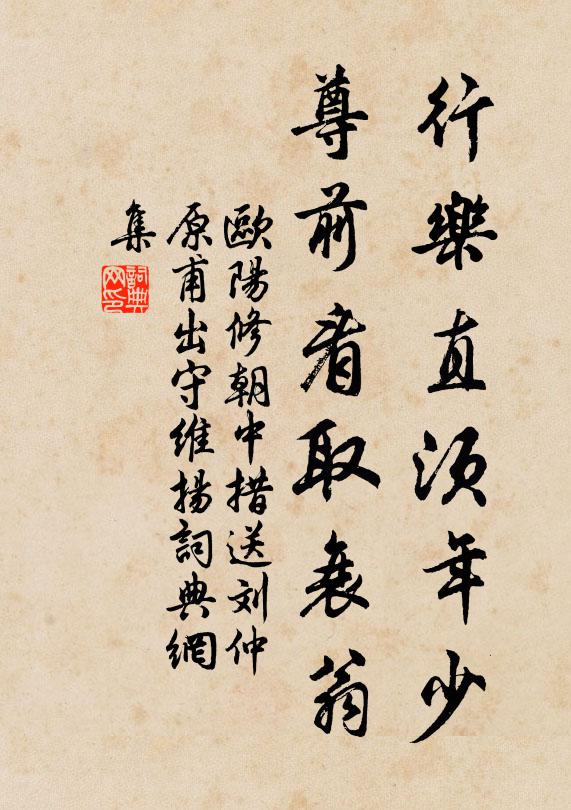 行樂直須年少
尊前看取衰翁
歐陽修朝中措送刘仲
原甫出守維揚詞典網
集
詞典
网印